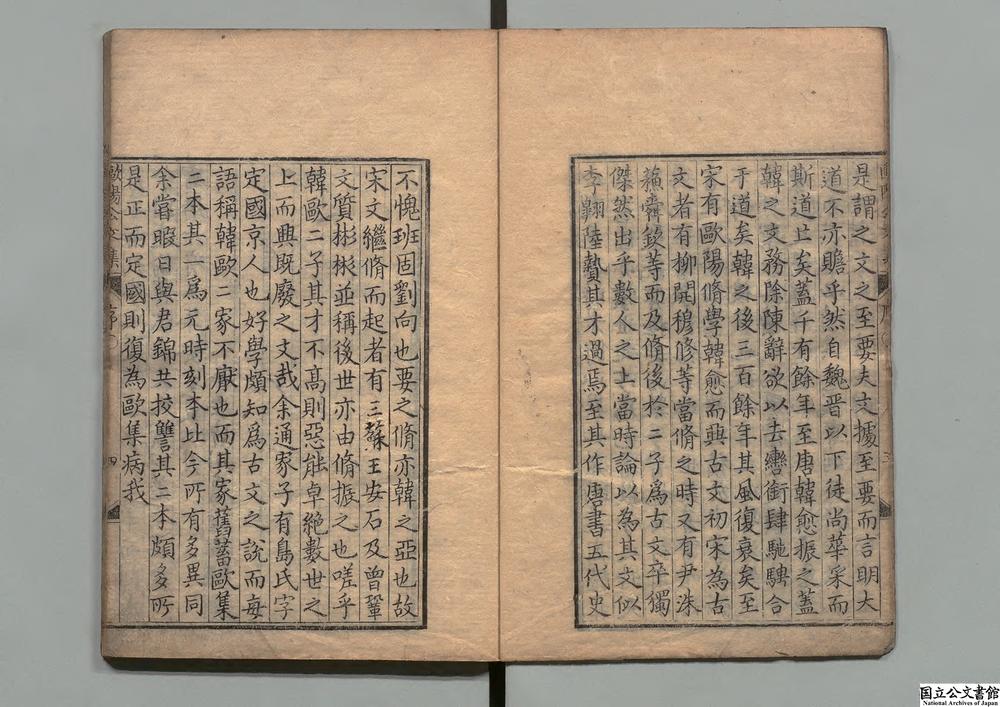 是謂之文文之至要夫文據至要而言明大
道不亦贍乎然自魏晉以下徒尚華采而
斯道止矣蓋千有餘年至唐韓愈振之蓋
韓之文務除陳辭欲以去轡銜肆馳騁合
于道矣韓之後三百餘年其風復衰矣至
宋有歐陽脩學韓愈而興古文初宋為古
文者有柳開穆修等當脩之時又有尹洙
蘇舜欽等而及脩後於二子爲古文卒獨
傑然出乎數人之上當時論以為其文似
李翺陸贄其才過焉至其作唐書五代史
不愧班固劉向也要之脩亦韓之亞也故
宋文繼脩而起者有三蘇王安石及曾鞏
文質彬彬並稱後世亦由脩振之也嗟乎
韓歐二子其才不高則惡能卓絶數世之
上而興既廢之文哉余通家子有島氏字
定國京人也好學頗知爲古文之說而每
語稱韓歐二家不厭也而其家舊蓄歐集
二本其一爲元時刻本比今所有多異同
余嘗暇日與君錦共挍讐其二本頗多所
是正而定國則復為歐集病我
歐陽公文集
序
四
国立公文書館
National Archives of Japan